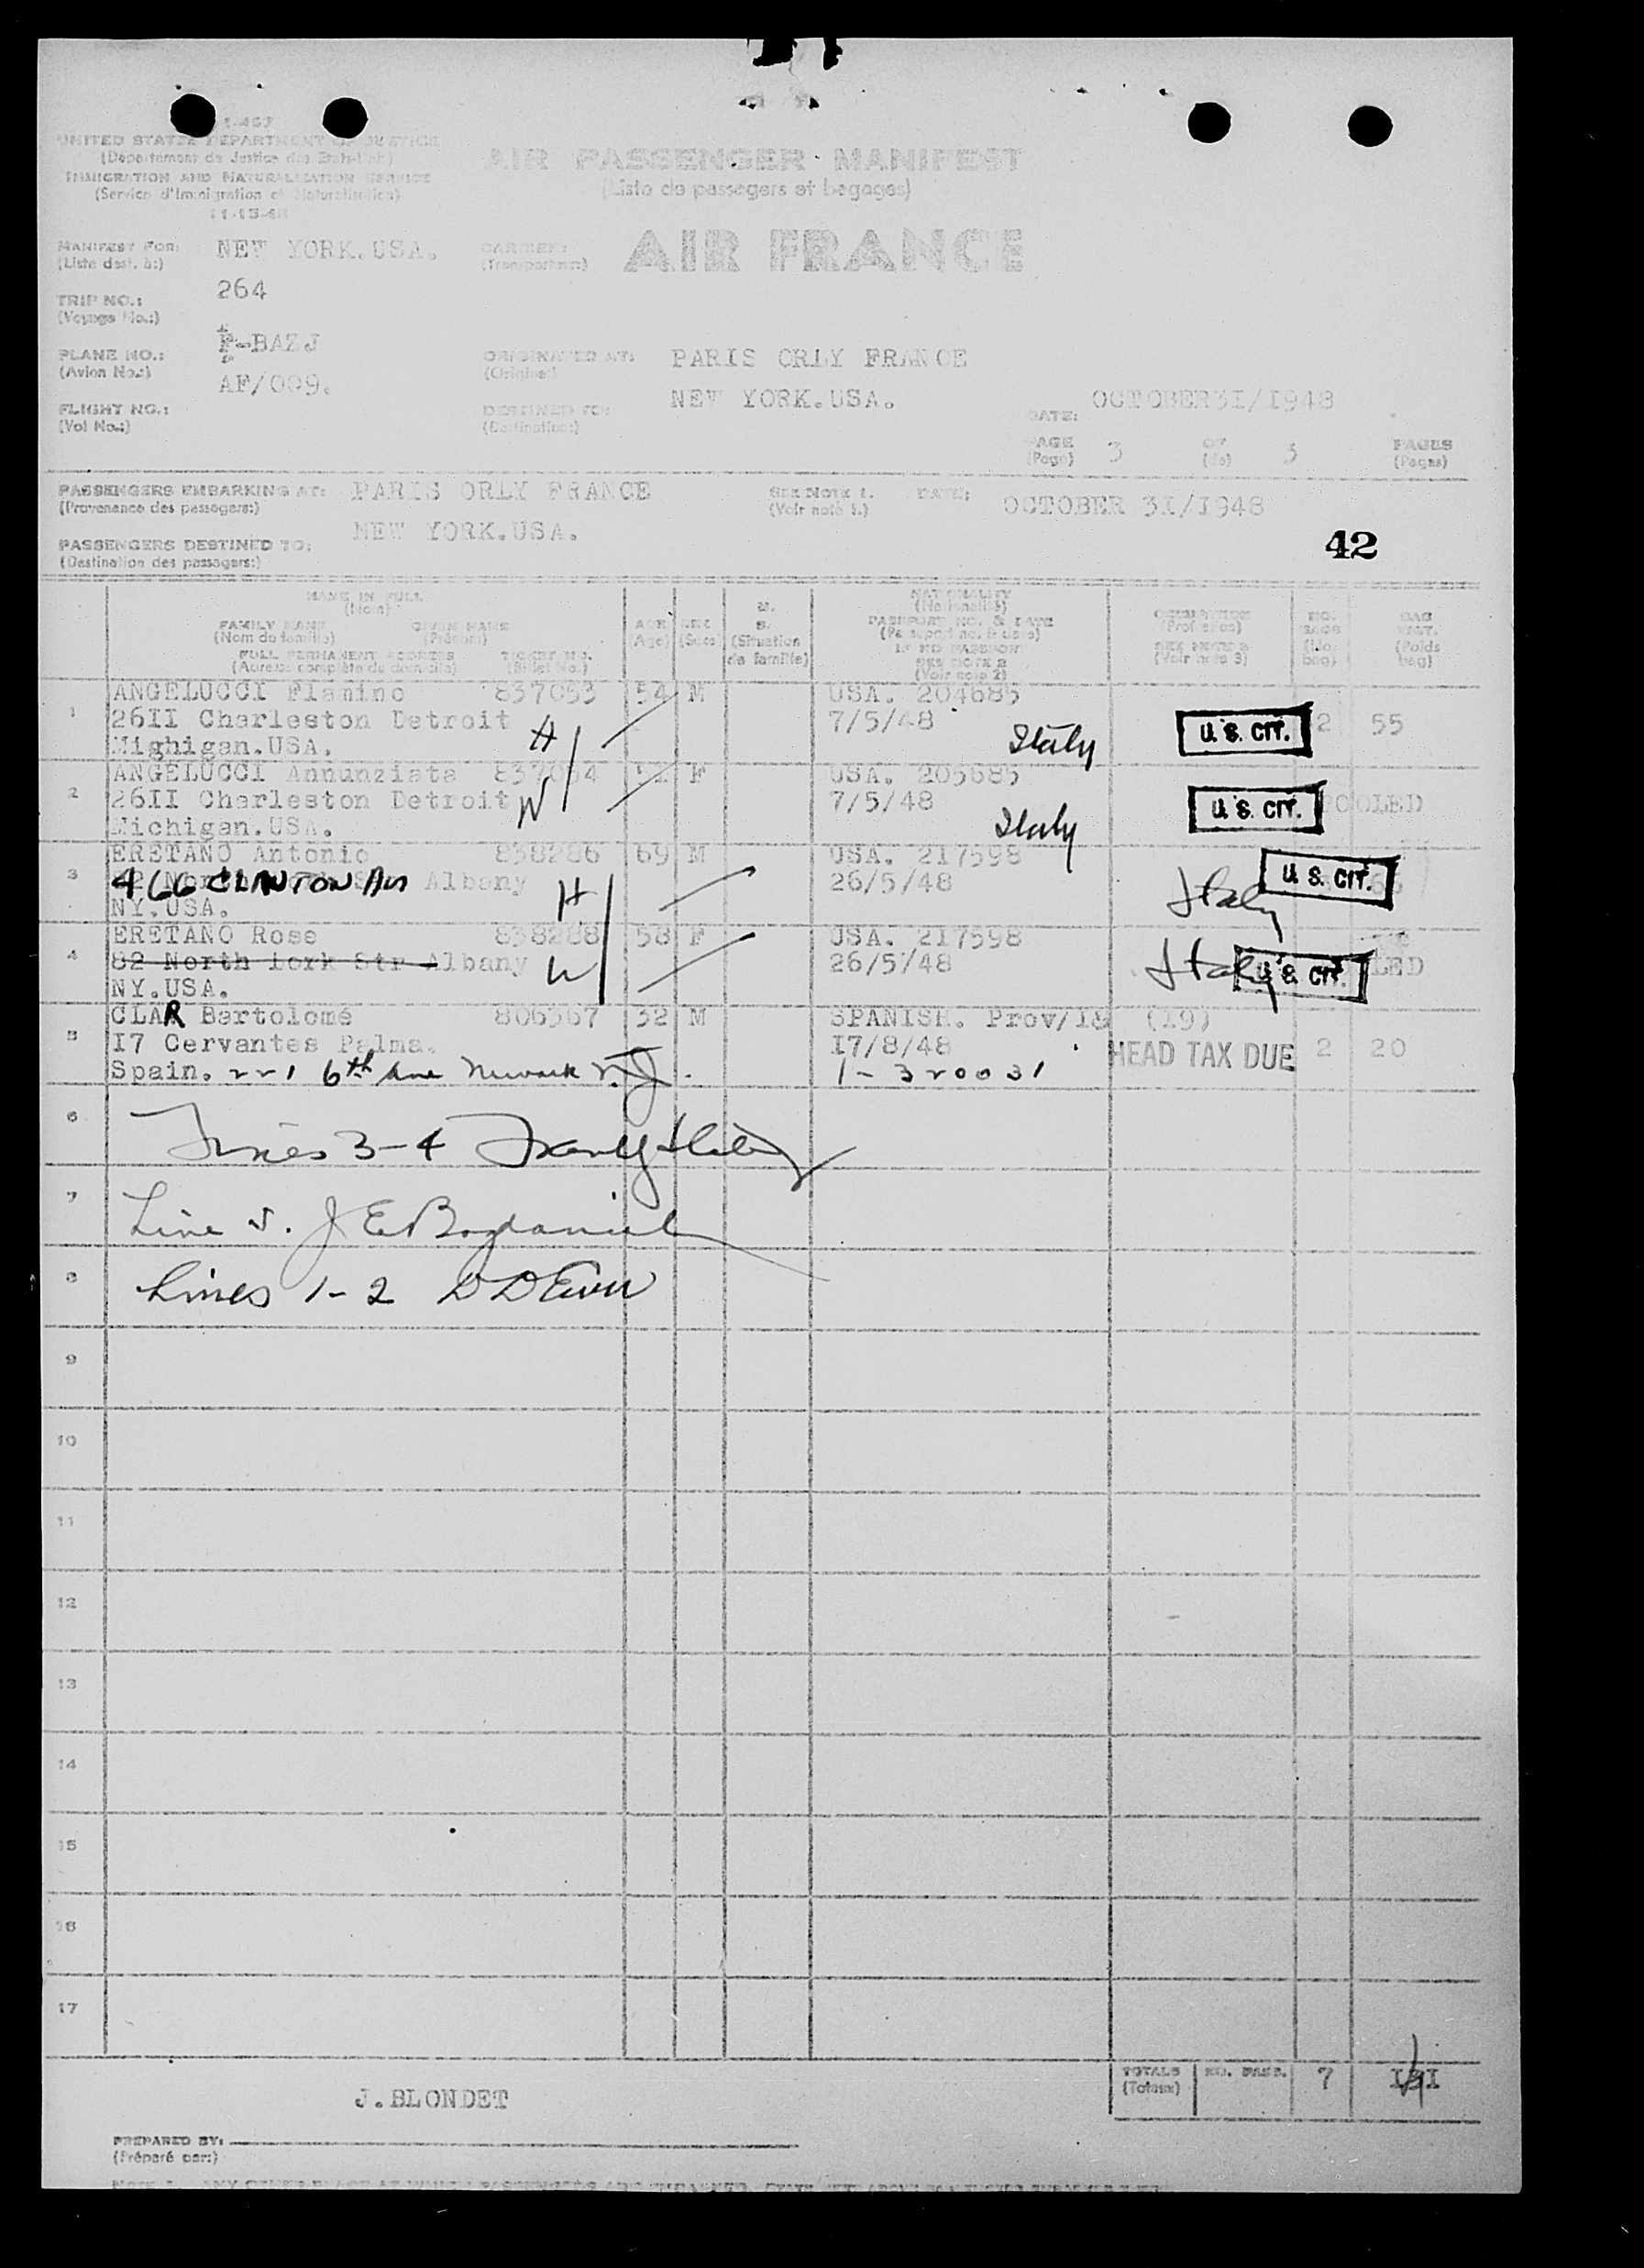 I-467
UNITED STATES DEPARTMENT OF JUSTICE
(Département de Justice des Etats-Unis)
IMMIGRATION AND NATURALIZATION SERVICE
(Service d'Immigration et Naturalisation)
11-15-4
AIR PASSENGER MANIFEST
(Liste de passagers et bagages)
MANIFEST FOR: NEW YORK.USA.
(Liste dest. à:)
CARRIER: AIR FRANCE
(Transporteur:)
TRIP NO.: 264
(Voyage No.:)
PLANE NO.: F-BAZJ
(Avion No.:)
ORIGINATED AT: PARIS ORLY FRANCE
(Origine:)
AF/009.
FLIGHT NO.:
(Vol No.:)
DESTINED TO: NEW YORK.USA.
(Destination:)
DATE: OCTOBER31/1948
PAGE 3 OF 3 PAGES
(Page) (de) (Pages)
PASSENGERS EMBARKING AT: PARIS ORLY FRANCE
(Provenance des passagers:)
SEE NOTE 1. DATE: OCTOBER 3I/I948
(Voir note 1.)
NEW YORK.USA.
PASSENGERS DESTINED TO:
(Destination des passagers:)
42
NAME IN FULL
(Nom)
FAMILY NAME GIVEN NAME
(Nom de famille) (Prénom)
FULL PERMANENT ADDRESS TICKET NO.
(Adresse complète du domicile) (Billet No.)
AGE
(Age)
SEX
(Sexe)
M.
S.
(Situation
de famille)
NATIONALITY
(Nationalité)
PASSPORT NO. & DATE
IF NO PASSPORT
SEE NOTE 2
(Voir note 2)
OCCUPATION
(Profession)
SEE NOTE 3
(Voir note 3)
NO.
BAGS
(No.
bag)
BAG
WGT.
(Poids
bag)
1 ANGELUCCI Flamino 837053 54 M USA. 204685
26II Charleston Detroit H 7/5/48 Italy U.S. CIT. 2 55
Mighigan.USA.
2 ANGELUCCI Annunziata 837054 F USA. 205685
26II Charleston Detroit W 7/5/48 Italy U.S. CIT. POOLED
Michigan.USA.
3 ERETANO Antonio 838286 69 M USA. 217598
466 CLINTON Av Albany H 26/5/48 Italy U.S. CIT.
NY.USA.
4 ERETANO Rose 838288 58 F USA. 217598
82 North York Str Albany W 26/5/48 Italy U.S. CIT. LED
NY.USA.
5 CLAR Bartolomé 806367 32 M SPANISH. Prov/18 (19)
I7 Cervantes Palma. I7/8/48 HEAD TAX DUE 2 20
Spain. 221 6th Ave Newark N.J. 1-320031
6 Lines 3-4
7 Line 5. J E
8 Lines 1-2
9
10
11
12
13
14
15
16
17
TOTALS NO. PASS. 7
(Totaux)
J.BLONDET
PREPARED BY:
(Préparé par:)